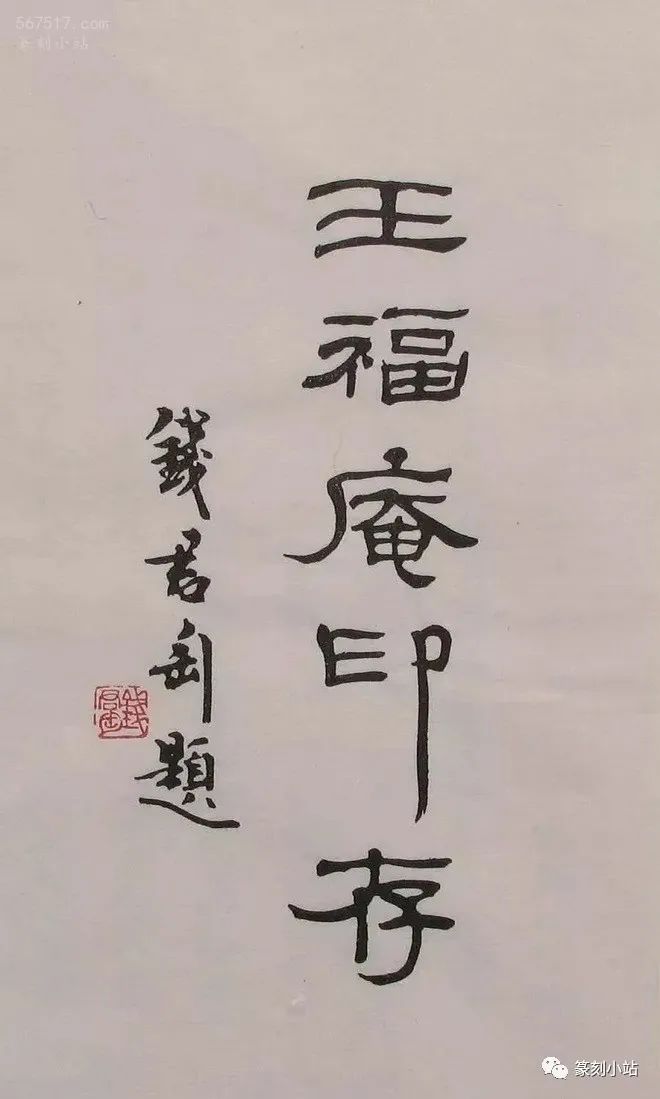 567517.com
篆刻小站
王福庵印存
錢君匋題
錢君匋
篆刻小站